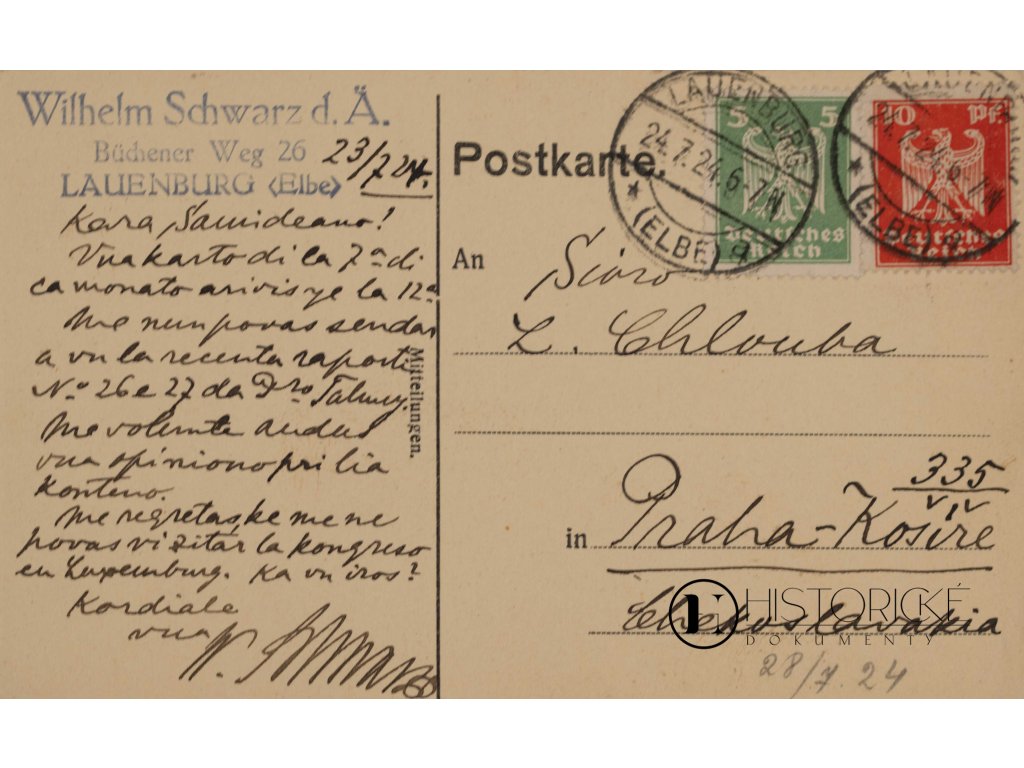 Wilhelm Schwarz d. Ä.
Büchener Weg 26
LAUENBURG (Elbe)
23/7 24.
Kara Samideano!
Vua karto di la 7a di
ca monato arivis ye la 12a
Me nun povas sendar
a vu la recenta raporti
No 26 e 27 da Dro Talmey.
Me volunte audus
vua opiniono pri lia
konteno.
Me regretas, ke me ne
povas vizitar la kongreso
en Luxemburg. Ka vu iros?
Kordiale
vua W. Schwarz
Mitteilungen.
Postkarte.
LAUENBURG
24.7.24.6-7N
* (ELBE) q
5 5
Deutsches
Reich
LAUENBURG
24.7.24.6-7N
* (ELBE) q
10 Pf
Deutsches
Reich
An Sioro
L. Chlouba
335
in Praha-Košíře
Chekoslovakia
HISTORICKÉ
DOKUMENTY
28/7.24